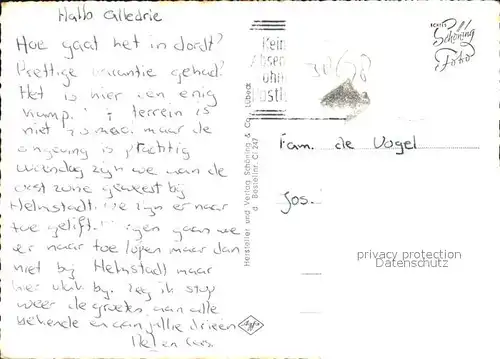 Hallo alledrie
Hoe gaat het in dordt?
Prettige vacantie gehad?
Het is hier een enig
kamp. terrein is
niet zo mooi maar de
omgeving is prachtig
Woensdag zijn we aan de
oost zone geweest bij
Helmstadt. We zijn er naar
toe gelift. gaan we
er naar toe lopen maar dan
niet bij Helmstadt maar
hier vlak bij. Zeg ik stop
weer de groeten aan alle
bekende en aan jullie drieën
echte
Schöning
Foto
Kein
Absen
ohn
Postl
Hersteller und Verlag Schöning & Co., Lübeck
Bestellnr. C! 247
Fam. de Vogel
Jos.
privacy protection
Datenschutz
Agfa